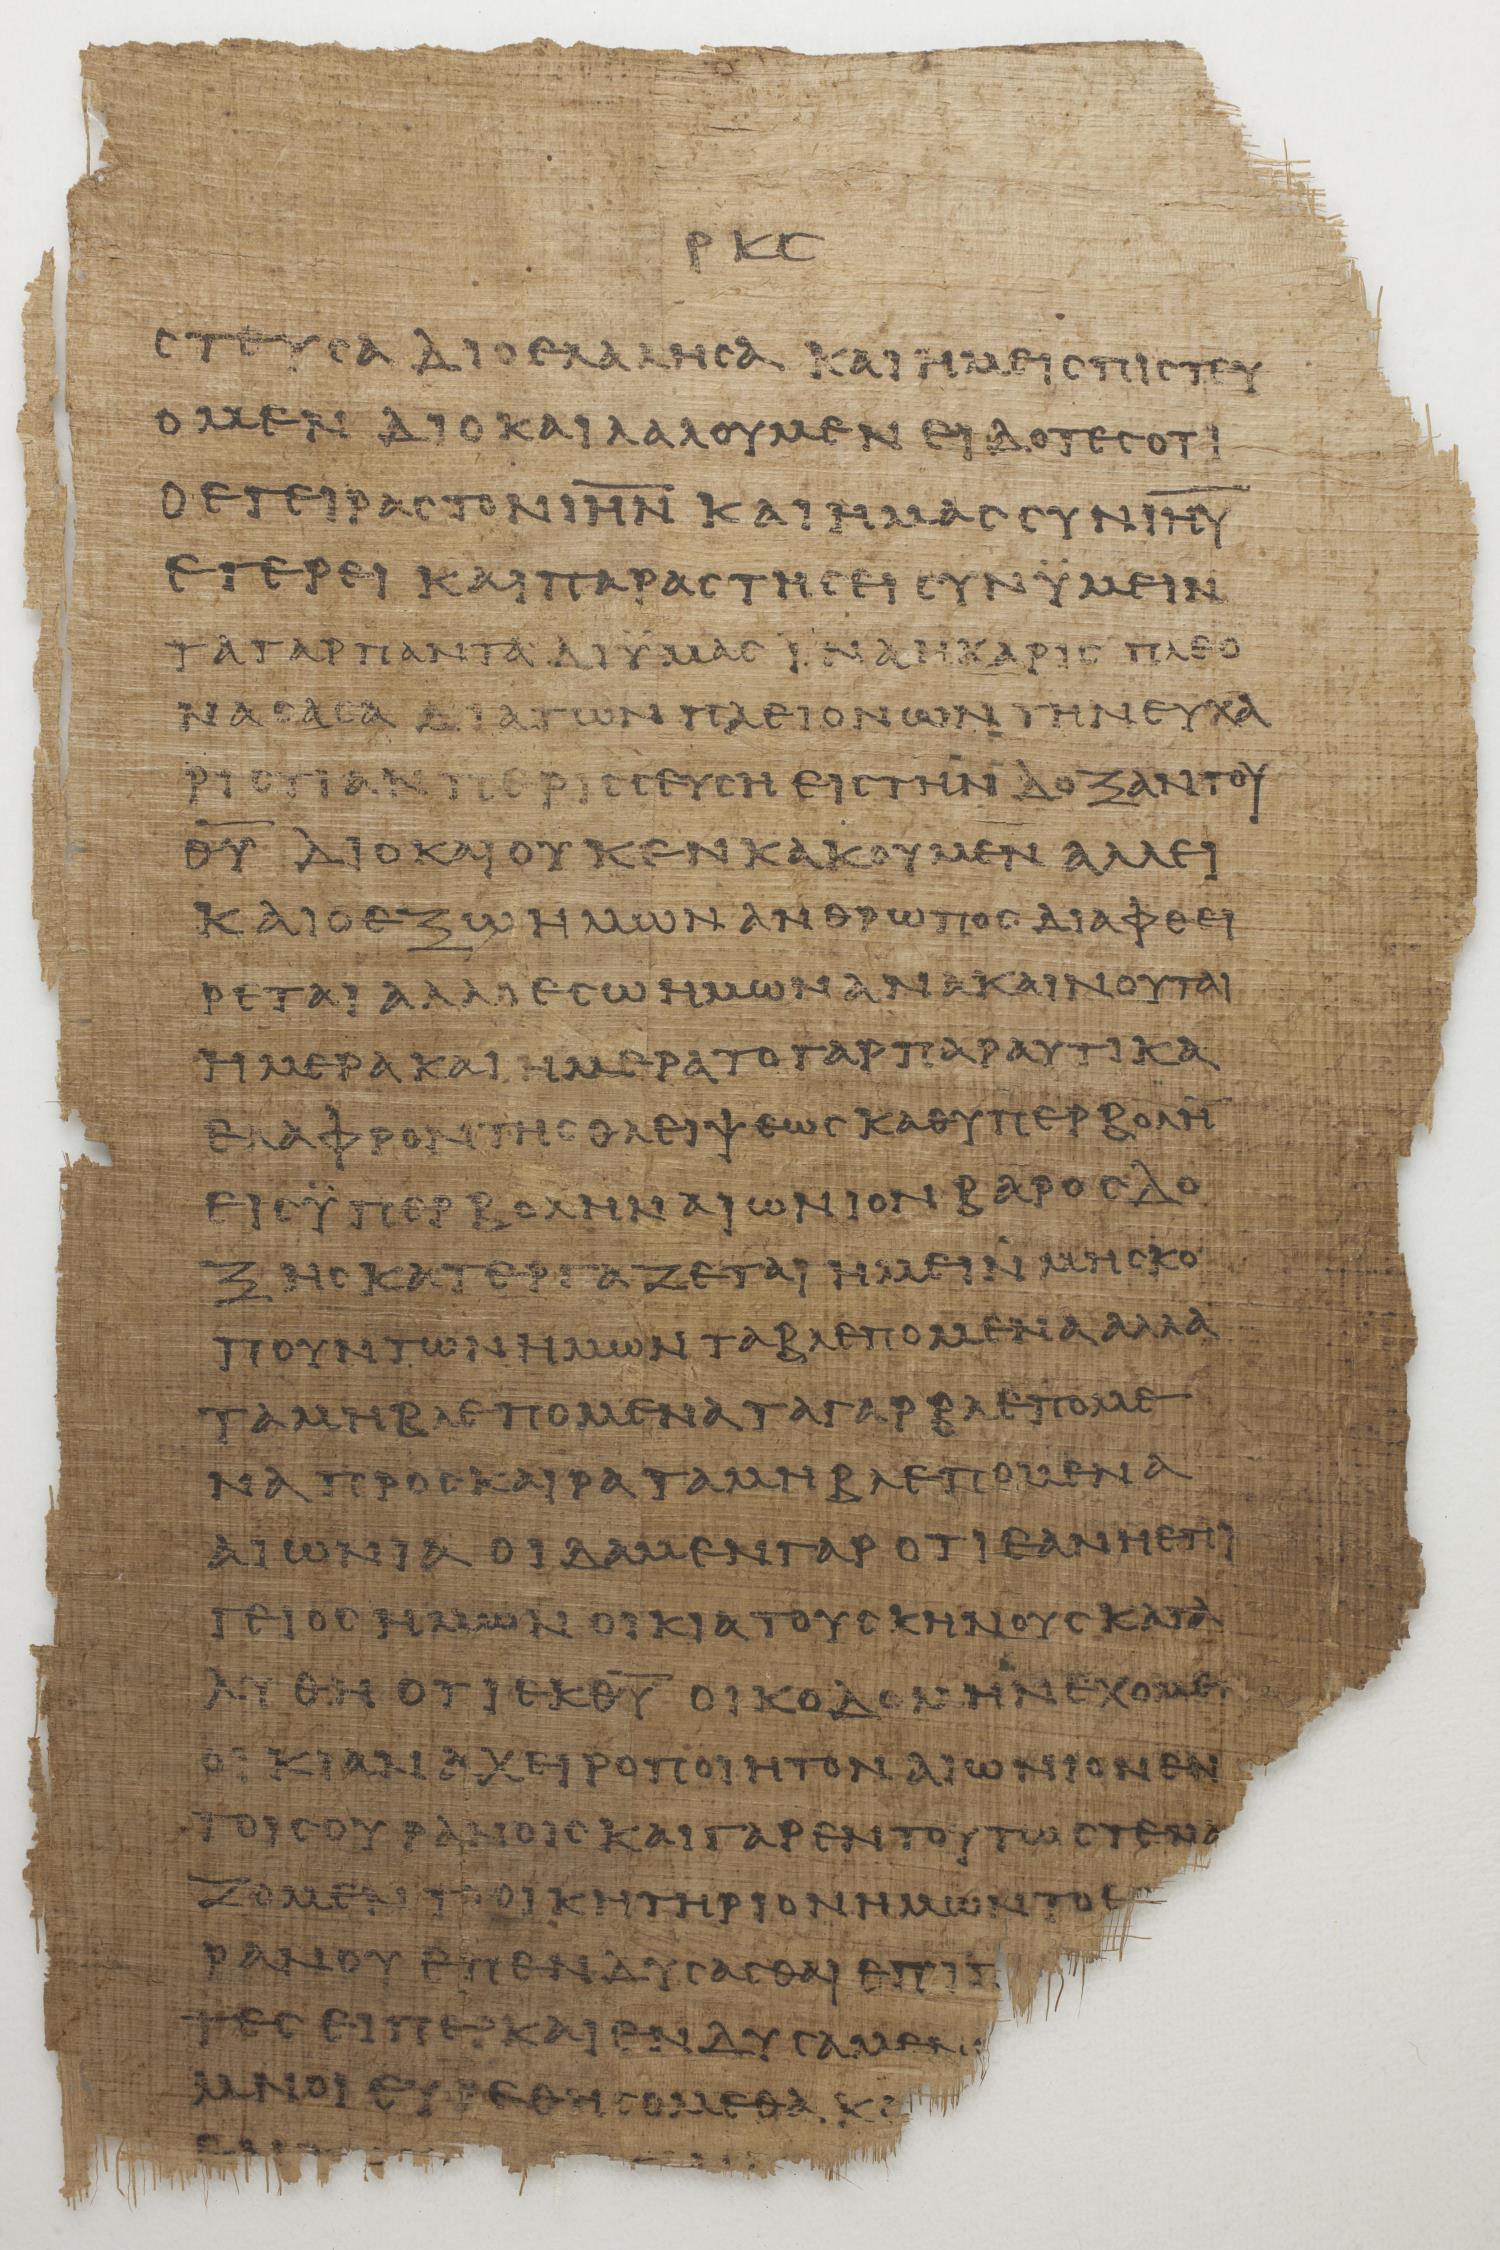 ΡΚϚ
ϹΤΕΥϹΑ ΔΙΟ ΕΛΑΛΗϹΑ ΚΑΙ ΗΜΕΙϹ ΠΙϹΤΕΥ
ΟΜΕΝ ΔΙΟ ΚΑΙ ΛΑΛΟΥΜΕΝ ΕΙΔΟΤΕϹ ΟΤΙ
Ο ΕΓΕΙΡΑϹ ΤΟΝ Ι̅Η̅Ν̅ ΚΑΙ ΗΜΑϹ ϹΥΝ Ι̅Η̅Υ̅
ΕΓΕΡΕΙ ΚΑΙ ΠΑΡΑϹΤΗϹΕΙ ϹΥΝ ΫΜΕΙΝ
ΤΑ ΓΑΡ ΠΑΝΤΑ ΔΙ ΫΜΑϹ ΙΝΑ Η ΧΑΡΙϹ ΠΛΕΟ
ΝΑϹΑϹΑ ΔΙΑ ΤΩΝ ΠΛΕΙΟΝΩΝ ΤΗΝ ΕΥΧΑ
ΡΙϹΤΙΑΝ ΠΕΡΙϹϹΕΥϹΗ ΕΙϹ ΤΗΝ ΔΟΞΑΝ ΤΟΥ
Θ̅Υ̅ ΔΙΟ ΚΑΙ ΟΥΚ ΕΝΚΑΚΟΥΜΕΝ ΑΛΛ ΕΙ
ΚΑΙ Ο ΕΞΩ ΗΜΩΝ ΑΝΘΡΩΠΟϹ ΔΙΑΦΘΕΙ
ΡΕΤΑΙ ΑΛΛ Ο ΕϹΩ ΗΜΩΝ ΑΝΑΚΑΙΝΟΥΤΑΙ
ΗΜΕΡΑ ΚΑΙ ΗΜΕΡΑ ΤΟ ΓΑΡ ΠΑΡΑΥΤΙΚΑ
ΕΛΑΦΡΟΝ ΤΗϹ ΘΛΕΙΨΕΩϹ ΚΑΘ ΥΠΕΡΒΟΛΗ̅
ΕΙϹ ΫΠΕΡΒΟΛΗΝ ΑΙΩΝΙΟΝ ΒΑΡΟϹ ΔΟ
ΞΗϹ ΚΑΤΕΡΓΑΖΕΤΑΙ ΗΜΕΙΝ ΜΗ ϹΚΟ
ΠΟΥΝΤΩΝ ΗΜΩΝ ΤΑ ΒΛΕΠΟΜΕΝΑ ΑΛΛΑ
ΤΑ ΜΗ ΒΛΕΠΟΜΕΝΑ ΤΑ ΓΑΡ ΒΛΕΠΟΜΕ
ΝΑ ΠΡΟϹΚΑΙΡΑ ΤΑ ΜΗ ΒΛΕΠΟΜΕΝΑ
ΑΙΩΝΙΑ ΟΙΔΑΜΕΝ ΓΑΡ ΟΤΙ ΕΑΝ Η ΕΠΙ
ΓΕΙΟϹ ΗΜΩΝ ΟΙΚΙΑ ΤΟΥ ϹΚΗΝΟΥϹ ΚΑΤΑ
ΛΥΘΗ ΟΤΙ ΕΚ Θ̅Υ̅ ΟΙΚΟΔΟΜΗΝ ΕΧΟΜΕ
ΟΙΚΙΑΝ ΑΧΕΙΡΟΠΟΙΗΤΟΝ ΑΙΩΝΙΟΝ ΕΝ
ΤΟΙϹ ΟΥΡΑΝΟΙϹ ΚΑΙ ΓΑΡ ΕΝ ΤΟΥΤΩ ϹΤΕΝΑ
ΖΟΜΕΝ ΤΟ ΟΙΚΗΤΗΡΙΟΝ ΗΜΩΝ ΤΟ Ε
ΡΑΝΟΥ ΕΠΕΝΔΥϹΑϹΘΑΙ ΕΠΙΠ
ΤΕϹ ΕΙΠΕΡ ΚΑΙ ΕΝΔΥϹΑΜΕΝ
ΜΝΟΙ ΕΥΡΕΘΗϹΟΜΕΘΑ Κ